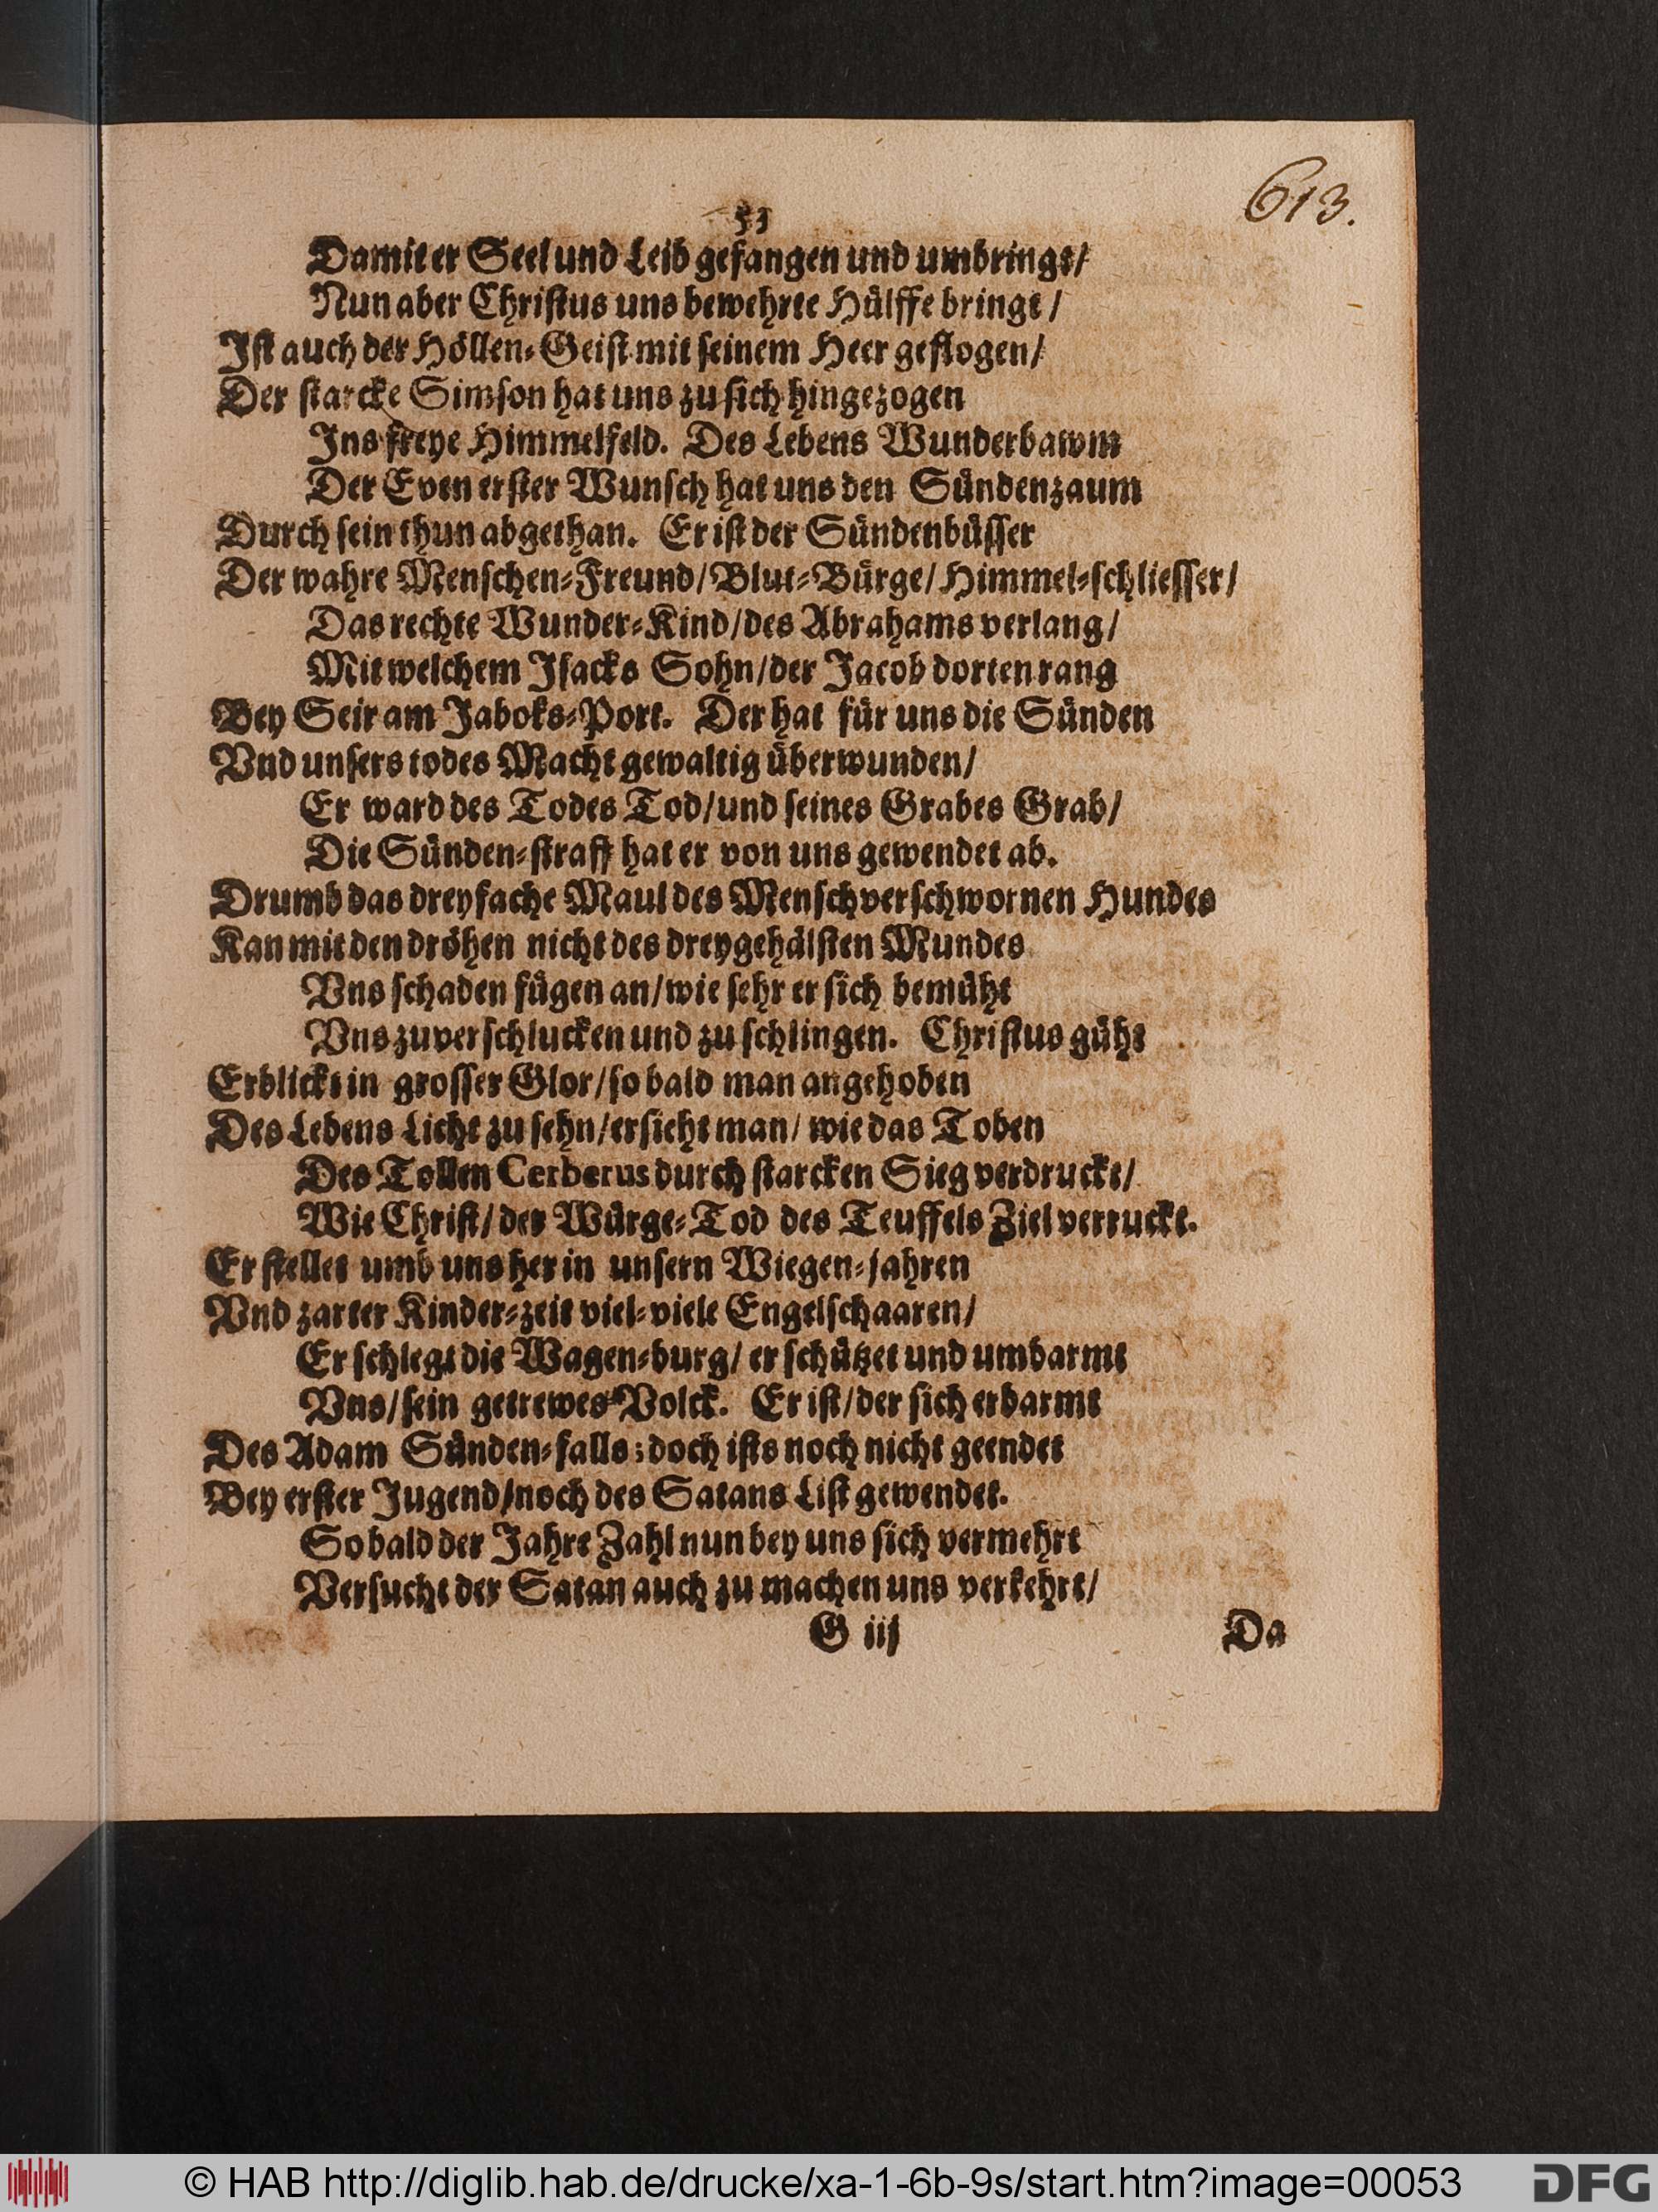 613.
53
Damit er Seel und Leib gefangen und umbringt/
Nun aber Chriſtus uns bewehrte Hülffe bringt/
Iſt auch der Höllen-Geiſt mit ſeinem Heer geflogen/
Der ſtarcke Simſon hat uns zu ſich hingezogen
Ins freye Himmelfeld. Des Lebens Wunderbawm
Der Even erſter Wunſch hat uns den Sündenzaum
Durch ſein thun abgethan. Er iſt der Sündenbüſſer
Der wahre Menſchen-Freund/Blut-Bürge/Himmel-ſchlieſſer/
Das rechte Wunder-Kind/des Abrahams verlang/
Mit welchem Iſacks Sohn/der Jacob dorten rang
Bey Seir am Jaboks-Port. Der hat für uns die Sünden
Vnd unſers todes Macht gewaltig überwunden/
Er ward des Todes Tod/und ſeines Grabes Grab/
Die Sünden-ſtraff hat er von uns gewendet ab.
Drumb das dreyfache Maul des Menſchverſchwornen Hundes
Kan mit den dröhen nicht des dreygehälſten Mundes
Vns ſchaden fügen an/wie ſehr er ſich bemüht
Vns zuverſchlucken und zu ſchlingen. Chriſtus güht
Erblickt in groſſer Glor/ſo bald man angehoben
Des Lebens Licht zu ſehn/erſieht man/wie das Toben
Des Tollen Cerberus durch ſtarcken Sieg verdruckt/
Wie Chriſt/der Würge-Tod des Teuffels Ziel verruckt.
Er ſtellet umb uns her in unſern Wiegen-jahren
Vnd zarter Kinder-zeit viel-viele Engelſchaaren/
Er ſchlegt die Wagen-burg/er ſchützet und umbarmt
Vns/ſein getrewes-Volck. Er iſt/der ſich erbarmt
Des Adam Sünden-falls; doch iſts noch nicht geendet
Bey erſter Jugend/noch des Satans Liſt gewendet.
So bald der Jahre Zahl nun bey uns ſich vermehrt
Verſucht der Satan auch zu machen uns verkehrt/
G iij Da
© HAB http://diglib.hab.de/drucke/xa-1-6b-9s/start.htm?image=00053
DFG